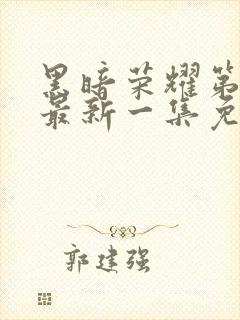 黑暗荣耀第
最新一集免
郭建强